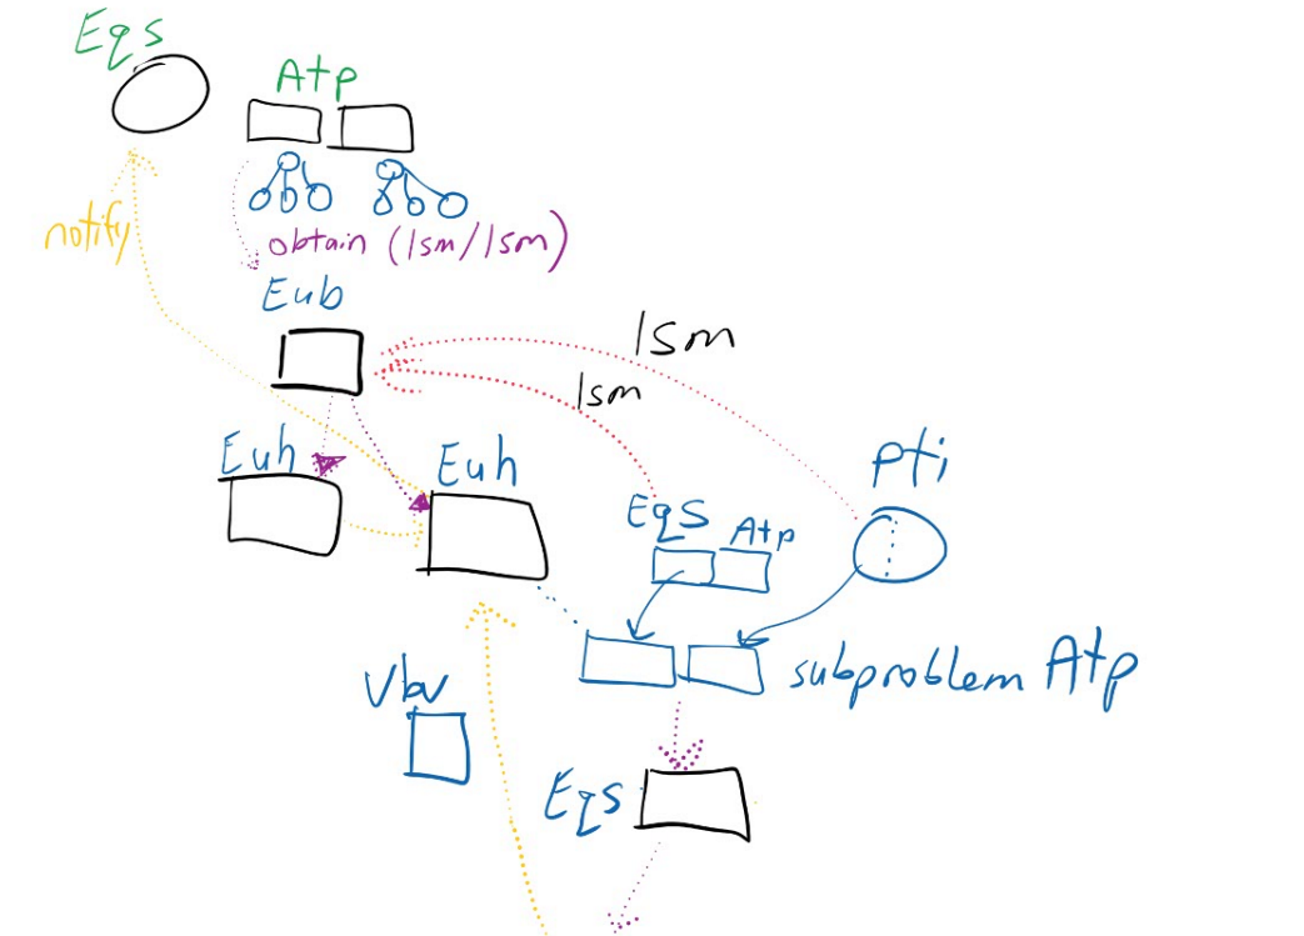 Eqs
Atp
notify
obtain (lsm/lsm)
Eub
lsm
lsm
Euh
Euh
pti
Eqs
Atp
subproblem Atp
Vbv
Eqs